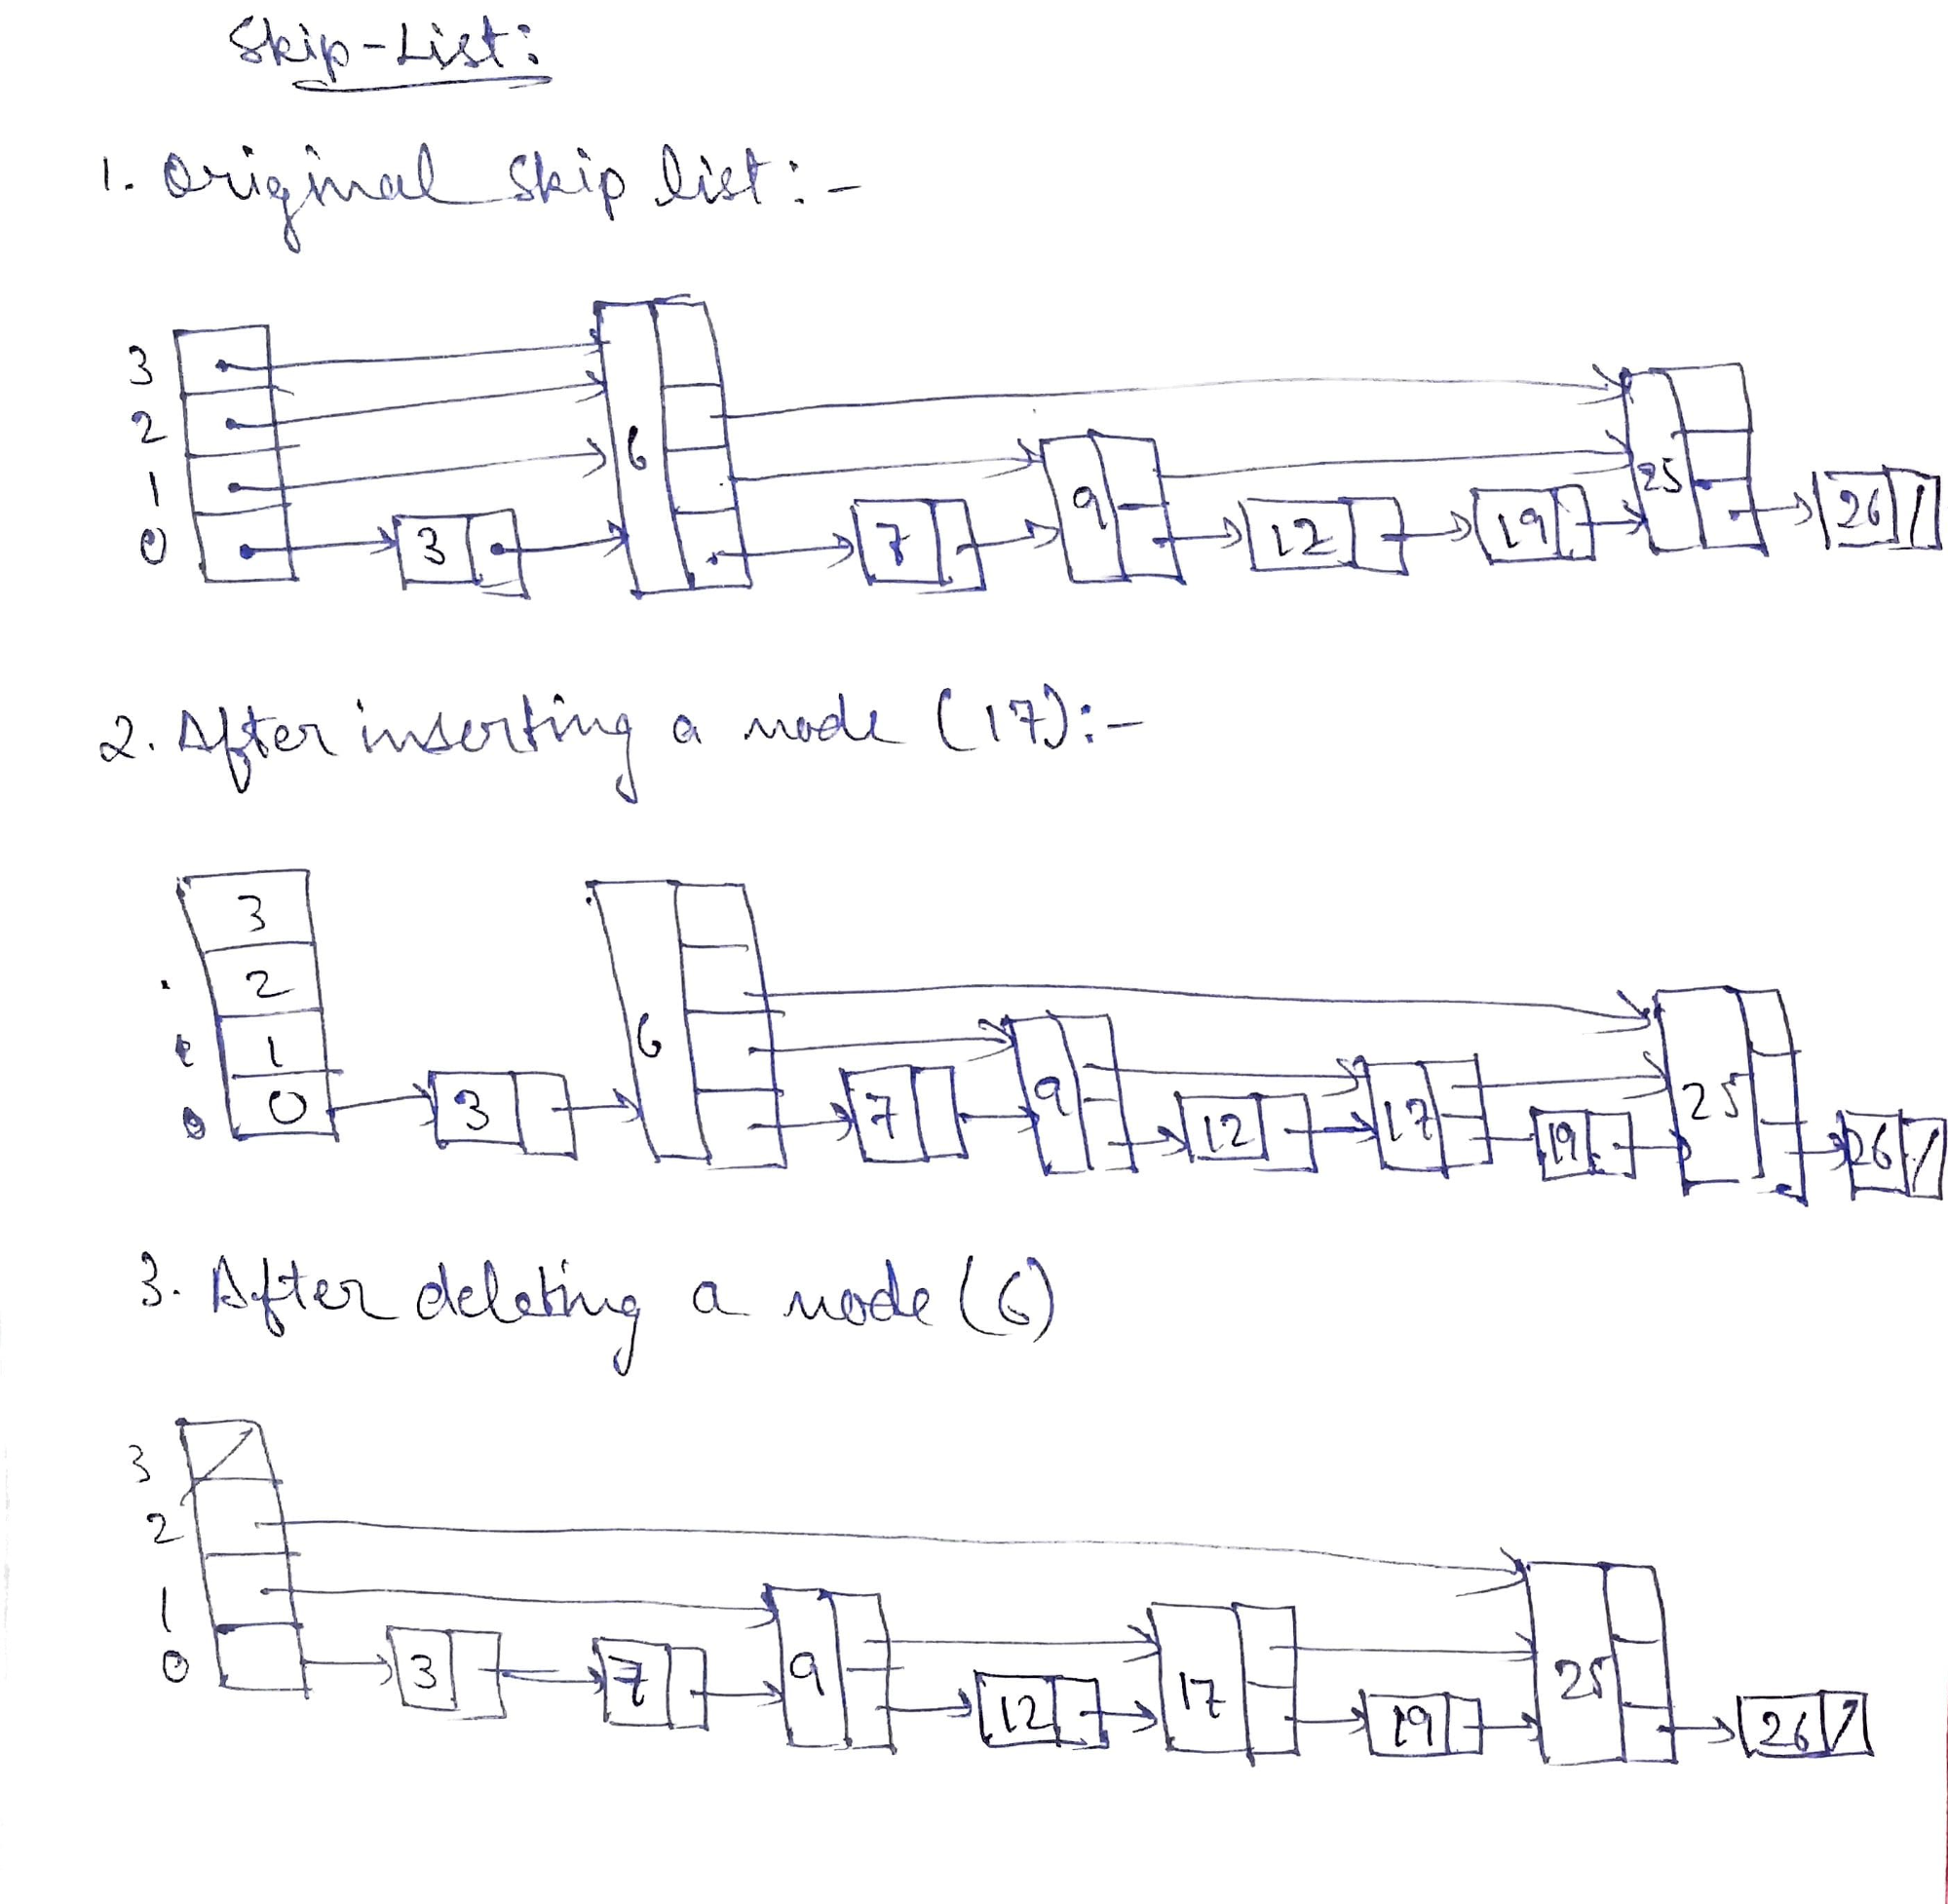 Skip-List:
1. Original Skip list:-
3
2
1
0
3
6
7
9
12
19
25
26
2. After inserting a node (17):-
3
2
1
0
3
6
7
9
12
17
19
25
26
3. After deleting a node (6)
3
2
1
0
3
7
9
12
17
19
25
26